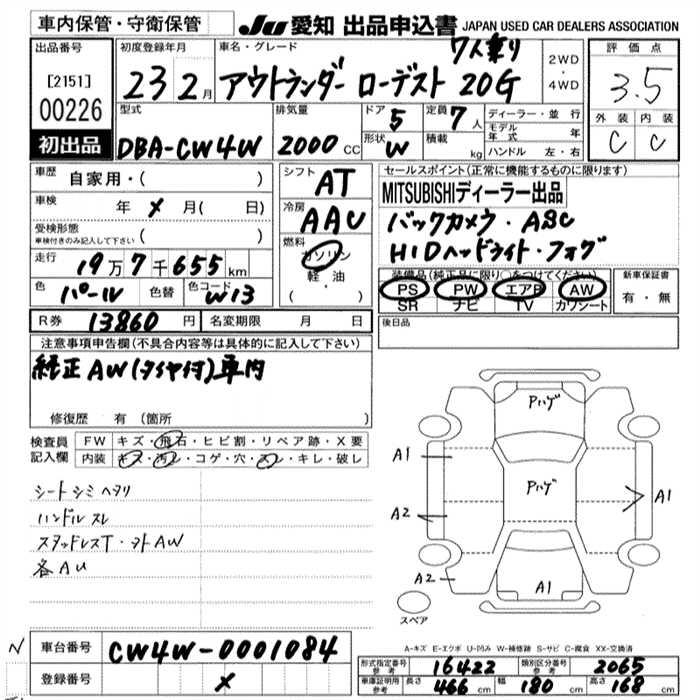 車内保管・守衛保管
JU 愛知 出品申込書 JAPAN USED CAR DEALERS ASSOCIATION
出品番号
[2151]
00226
初出品
初度登録年月
23 2月
車名・グレード
7人乗り
アウトランダー ローデスト 20G
2WD
・
4WD
評価点
3.5
外装 内装
C C
型式
DBA-CW4W
排気量
2000 CC
ドア 5
形状 W
定員 7人
積載 kg
ディーラー・並行
モデル年式 年
ハンドル 左・右
車歴 自家用・( )
車検 年 × 月( 日)
受検形態
車検付きのみ記入して下さい ( )
走行 19万7千655km
色 パール 色替 色コード W13
シフト AT
冷房 AAC
燃料
ガソリン
軽・油
(・ )
セールスポイント(正常に機能するものに限ります)
MITSUBISHIディーラー出品
バックカメラ・ASC
HIDヘッドライト・フォグ
装備品(純正品に限り○をつけてください)
PS PW エアB AW
SR ナビ TV カワシート
新車保証書
有・無
R券 13860円 名変期限 月 日
後日品
注意事項申告欄(不具合内容等は具体的に記入して下さい)
純正AW(タイヤ付)車内
修復歴 有 (箇所
検査員
記入欄
FW キズ・飛石・ヒビ割・リペア跡・X要
内装 キズ・汚レ・コゲ・穴・スレ・キレ・破レ
シートシミ ヘタリ
ハンドル スレ
スタッドレスT・ソトAW
各AU
Pハゲ
A1
Pハゲ
A1
A2
A2
A1
スペア
A-キズ E-エクボ U-凹み W-補修跡 S-サビ C-腐食 XX-交換済
N
車台番号 CW4W-0001084
登録番号 ×
形式指定番号
参考
16422
類別区分番号
参考
2065
車庫証明用
参考
長さ 466cm 幅 180cm 高さ 168cm